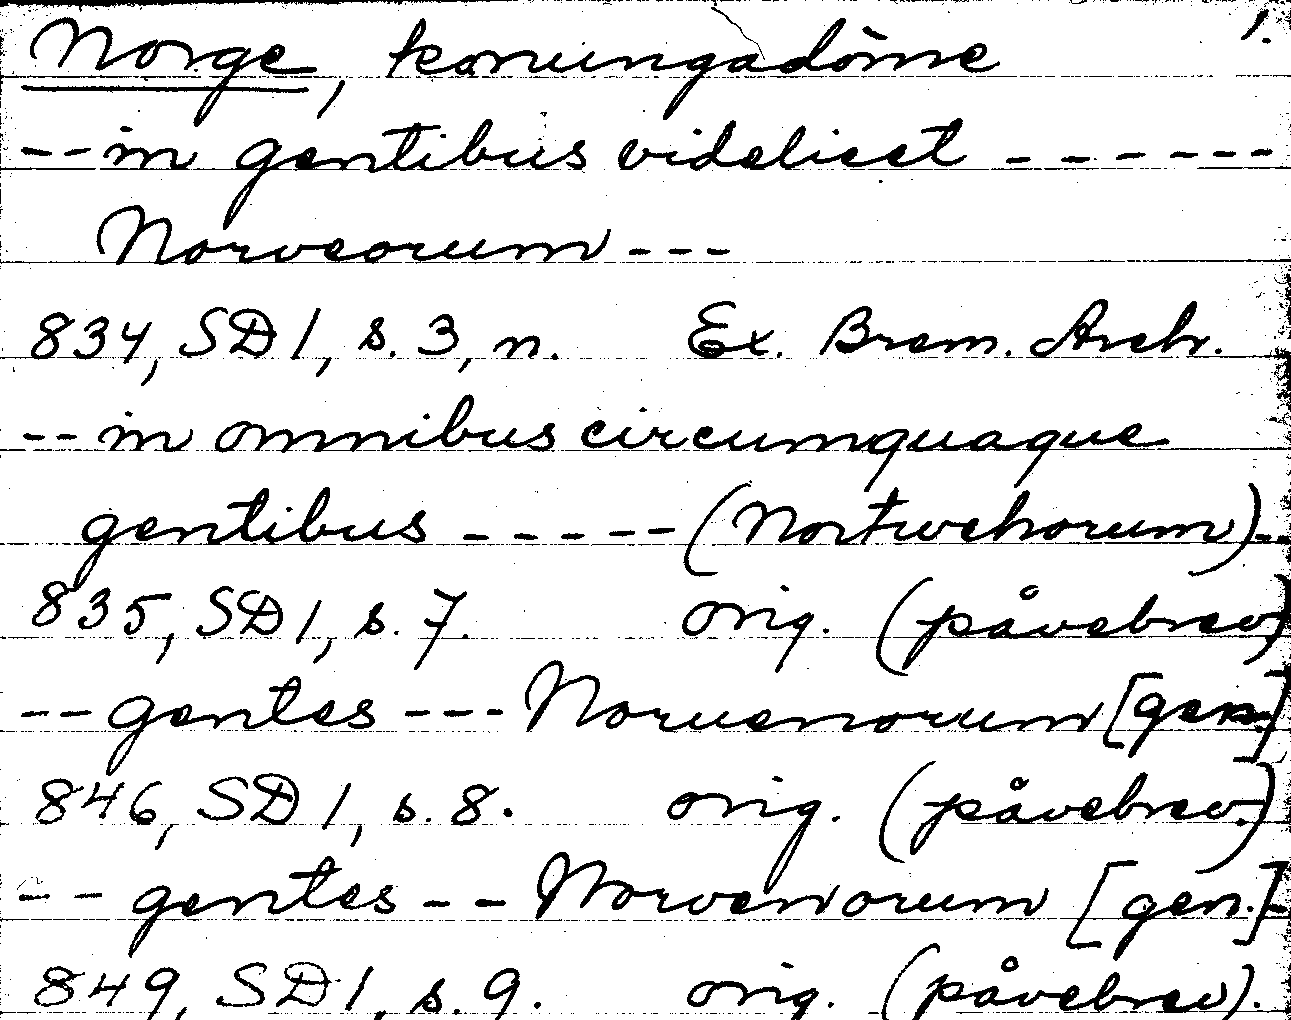 Norge, konungadöme 1.
--in gentibus videlicet ------
Norveorum ---
834, SD 1, s. 3, n. Ex. Brem. Arch.
--in omnibus circumquaque
gentibus ----- (Nortwehorum)--
835, SD 1, s. 7. orig. (påvebrev)
--gentes --- Noruenorum [gen.]
846, SD 1, s. 8. orig. (påvebrev.)
-- gentes -- Norvenorum [gen.]-
849, SD 1, s. 9. orig. (påvebrev).